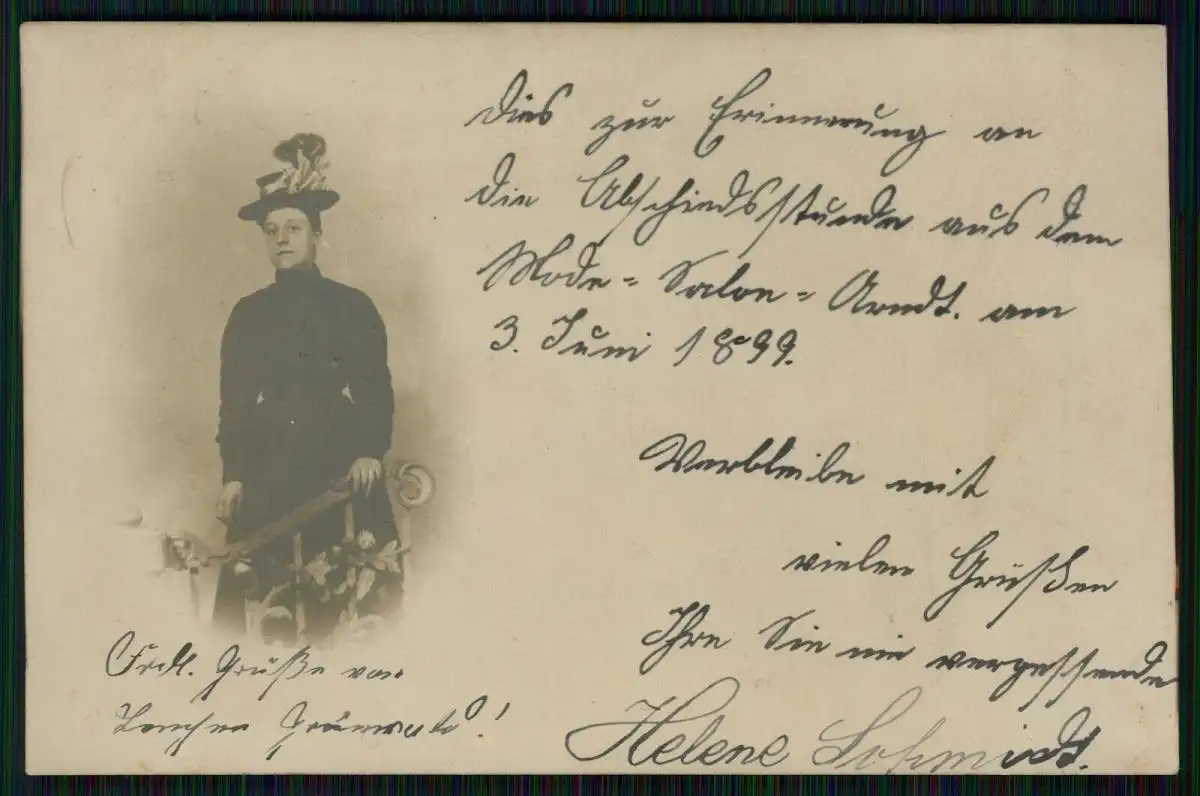 Dies zur Erinnerung an
die Abschiedsstunde aus dem
Mode-Salon-Arndt. am
3. Juni 1899.
Verbleibe mit
vielen Grüßen
Ihre Sie nie vergessende
Helene Schmidt.
Frdl. Grüße von
Lenchen Grünwald!